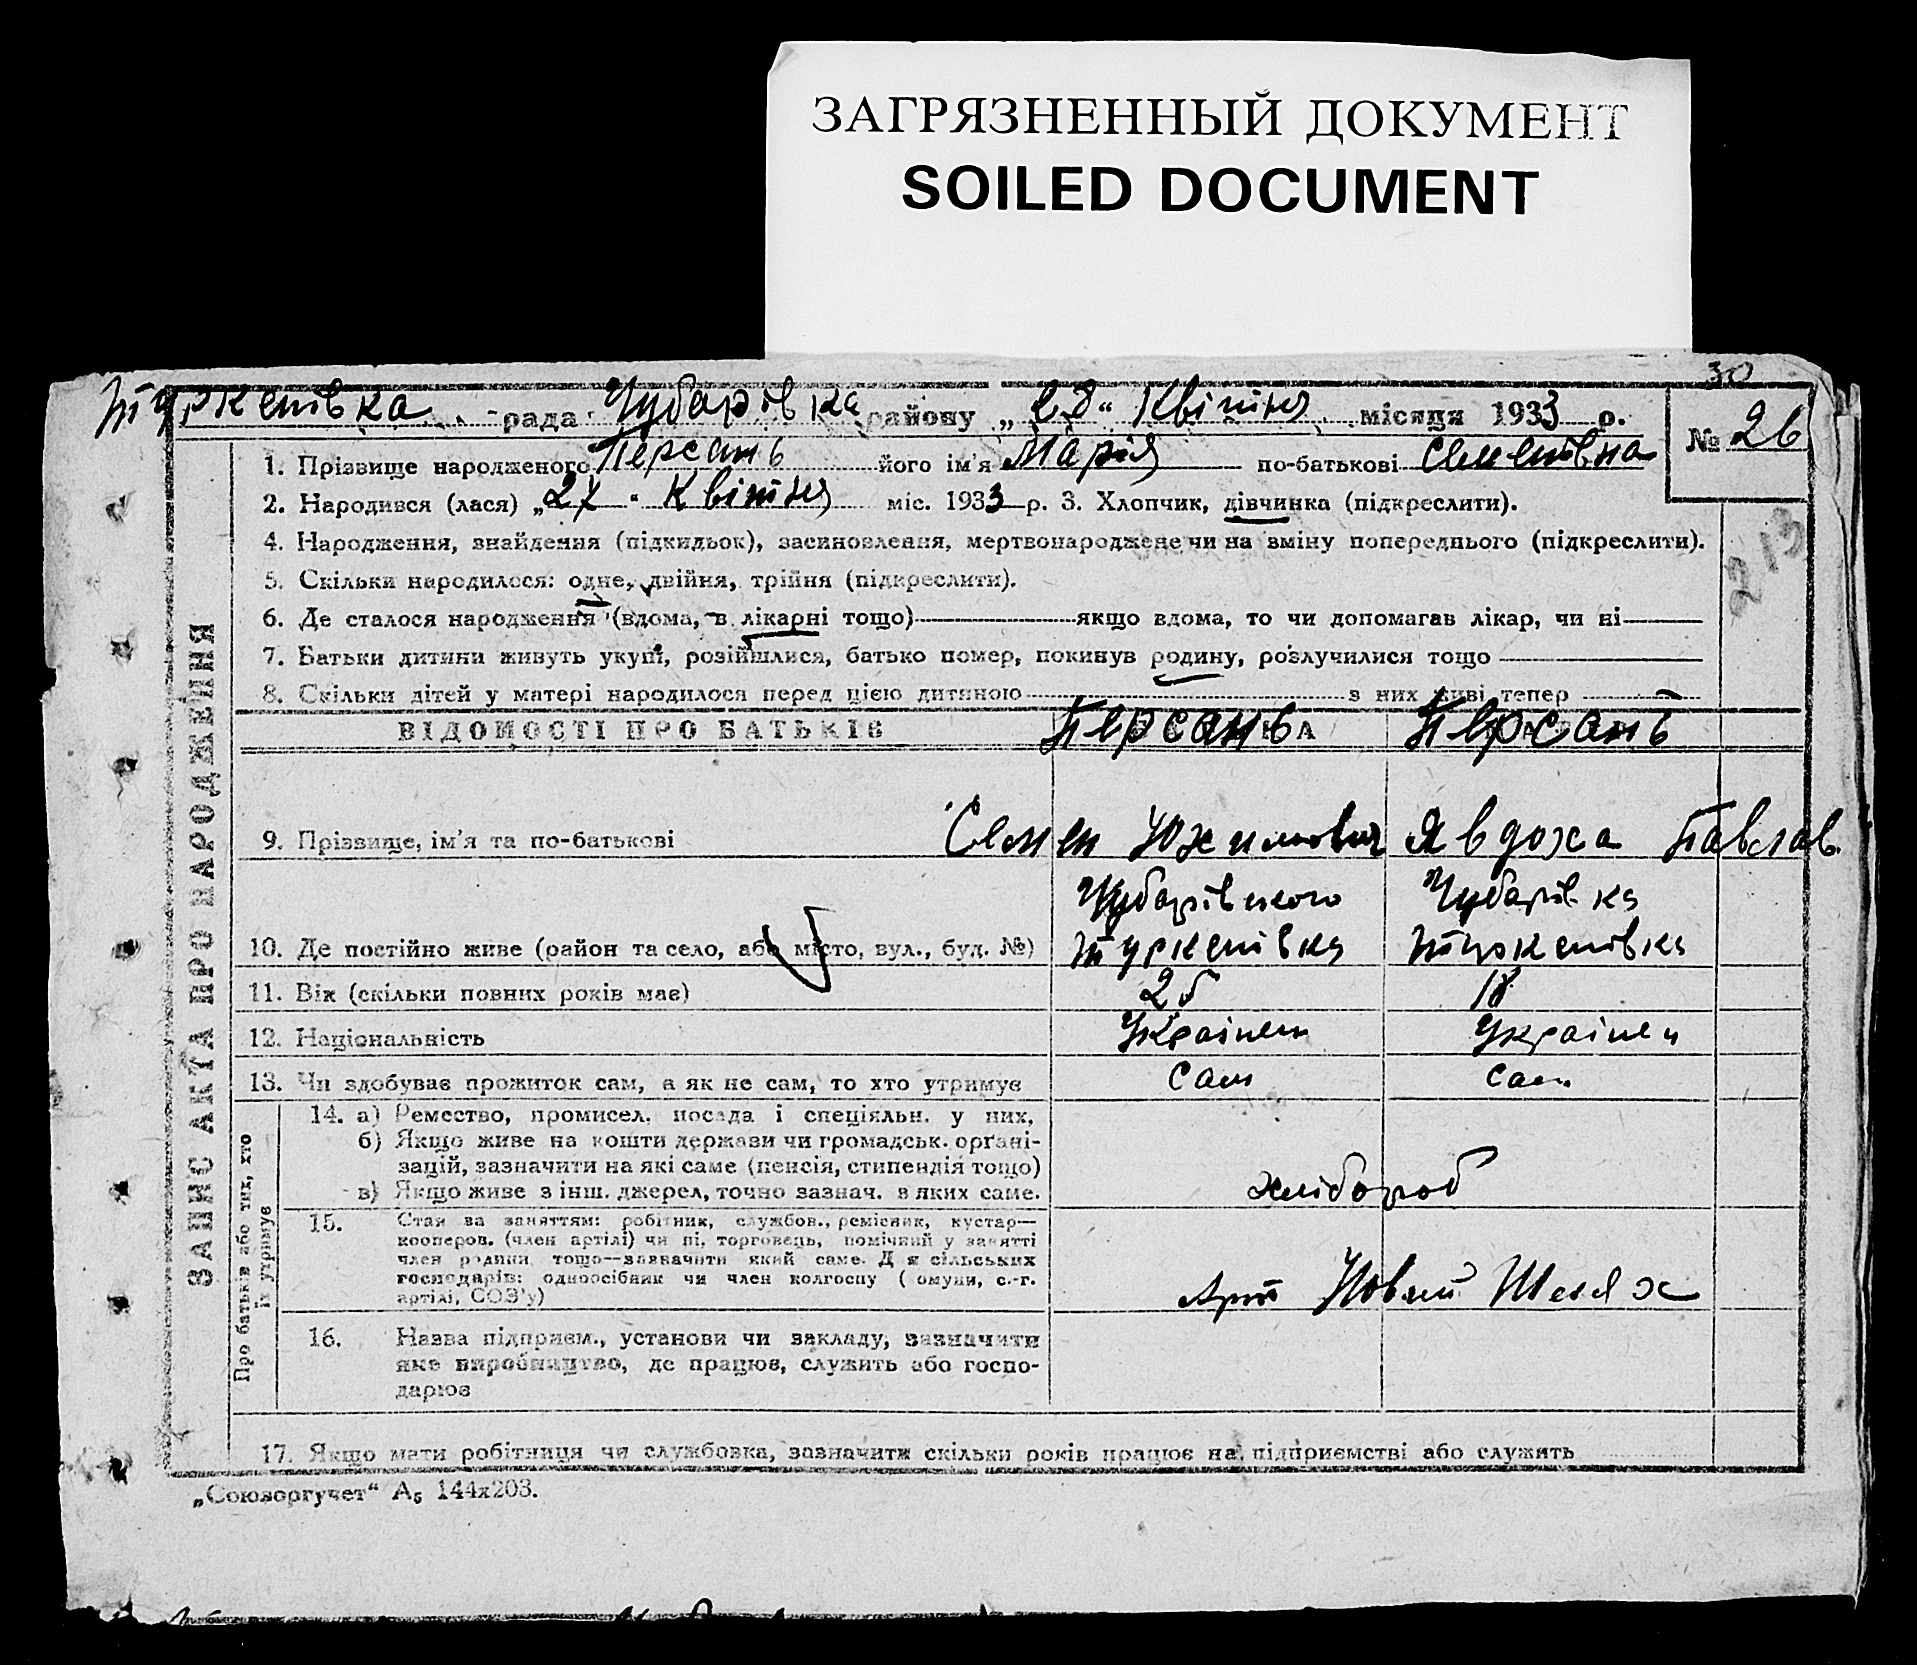 ЗАГРЯЗНЕННЫЙ ДОКУМЕНТ
SOILED DOCUMENT
30
Туркенівка рада Чубарівка району „28“ Квітня місяця 1933 р.
№ 26
1. Прізвище народженого Персань його ім'я Марія по-батькові Семенівна
2. Народився (лася) „2х“ Квітня міс. 1933 р. 3. Хлопчик, дівчинка (підкреслити).
4. Народження, знайдення (підкидьок), засиновлення, мертвонароджене чи на зміну попереднього (підкреслити).
5. Скільки народилося: одне, двійня, трійня (підкреслити).
6. Де сталося народження (вдома, в лікарні тощо) якщо вдома, то чи допомагав лікар, чи ні
7. Батьки дитини живуть укупі, розійшлися, батько помер, покинув родину, розлучилися тощо
8. Скільки дітей у матері народилося перед цією дитиною з них живі тепер
ЗАПИС АКТА ПРО НАРОДЖЕННЯ
ВІДОМОСТІ ПРО БАТЬКІВ Персань Персань
9. Прізвище, ім'я та по-батькові Семен Юхимович Явдоха Павлов
Чубарівського Чубарівка
10. Де постійно живе (район та село, або місто, вул., буд. №) Туркенівка Туркенівка
11. Вік (скільки повних років має) 25 18
12. Національність Українец Українец
13. Чи здобуває прожиток сам, а як не сам, то хто утримує сам сам
Про батьків або тих, хто їх утримує
14. а) Ремество, промисел, посада і спеціяльн. у них,
б) Якщо живе на кошти держави чи громадськ. органі-
зацій, зазначити на які саме (пенсія, стипендія тощо)
в) Якщо живе з інш. джерел, точно зазнач. в яких саме.
хлібороб
15. Стан за заняттям: робітник, службов., ремісник, кустар—
кооперов. (член артілі) чи ні, торговець, помічний у занятті
член родини тощо—зазначити який саме. Для сільських
господарів: одноосібник чи член колгоспу (комуни, с.-г.
артілі, СОЗ'у)
Арт Новий Шлях
16. Назва підприєм., установи чи закладу, зазначити
яке виробництво, де працює, служить або госпо-
дарює
17. Якщо мати робітниця чи службовка, зазначити скільки років працює на підприємстві або служить
„Союзоргучет“ А₅ 144х203.